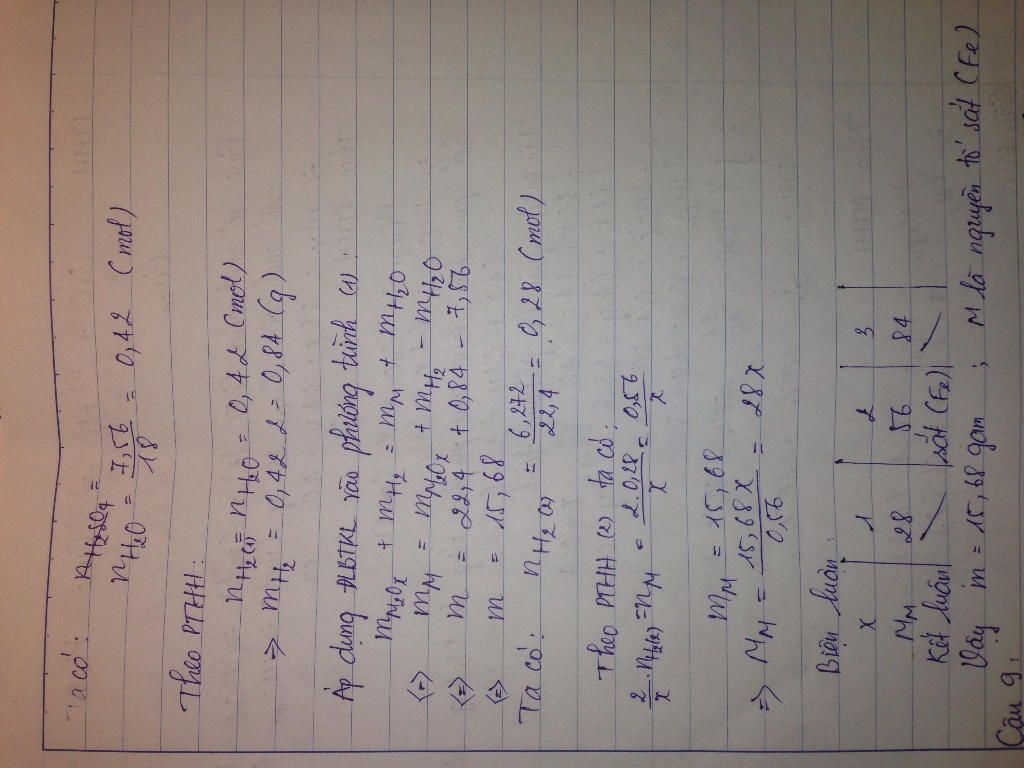 Ta có: n_H₂SO₄ =
n_H₂O = 7,56/18 = 0,42 (mol)
Theo PTHH:
n_H₂(1) = n_H₂O = 0,42 (mol)
=> m_H₂ = 0,42.2 = 0,84 (g)
Áp dụng ĐLBTKL vào phương trình (1):
m_M₂Ox + m_H₂ = m_M + m_H₂O
(=) m_M = m_M₂Ox + m_H₂ - m_H₂O
(=) m = 22,4 + 0,84 - 7,56
(=) m = 15,68
Ta có: n_H₂(2) = 6,272/22,4 = 0,28 (mol)
Theo PTHH (2) ta có:
2/x . n_H₂(2) = n_M = 2.0,28/x = 0,56/x
m_M = 15,68
=> M_M = 15,68x/0,56 = 28x
Biện luận:
x 1 2 3
M_M 28 56 84
Kết luận / sắt (Fe) /
Vậy m = 15,68 gam ; M là nguyên tố sắt (Fe)
Câu 9: